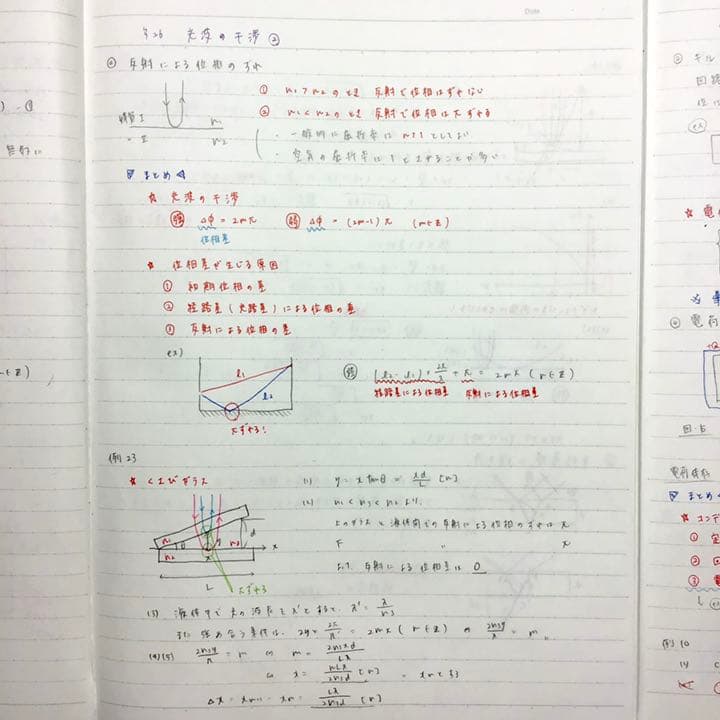 光波の干渉 ②
反射による位相のずれ
① n₁ > n₂ のとき 反射で位相はずれない
② n₁ < n₂ のとき 反射で位相は πずれる
媒質 I n₁
〃 II n₂
・一般的に屈折率は n≧1 としてよい
・空気の屈折率は 1 とすることが多い
まとめ
☆ 光波の干渉
強 Δφ = 2mπ 弱 Δφ = (2m-1)π (m∈Z)
位相差
☆ 位相差が生じる原因
① 初期位相の差
② 経路差(光路差)による位相の差
③ 反射による位相の差
ex)
l₁
l₂
πずれる!
強 (l₂-l₁)・2π/λ + π = 2mπ (m∈Z)
経路差による位相差 反射による位相差
例 23
☆ くさびガラス
n₁ n₂ n₃ θ y d x
L
πずれる
(1) y = x tanθ = xd/L [m]
(2) n₁ < n₃ < n₂ より
上のガラスと液体間での反射による位相のずれは π
下 〃 π
よって 反射による位相差は 0
(3) 液体中での光の波長を λ' とすると、λ' = λ/n₃
また 強め合う条件は、2y・2π/λ' = 2mπ (m∈Z) ⇔ 2n₃y/λ = m
(4)(5) 2n₃y/λ = m ⇔ m = 2n₃xd/Lλ
⇔ x = mLλ/2n₃d [m] = xm とする
Δx = xm+1 - xm = Lλ/2n₃d [m]
② キル
回路
ex
☆ 電
電荷
図.5
電荷保存
まとめ
☆ コンデ
① 定
② 回
③ 電
例 10